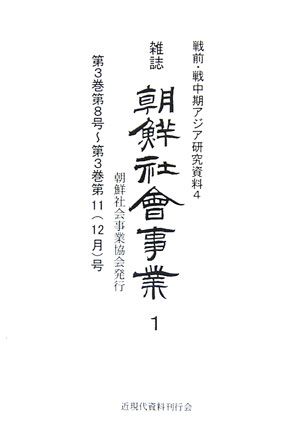 戦前・戦中期アジア研究資料4
雑誌
朝鮮社會事業 1
朝鮮社会事業協会発行
第3巻第8号～第3巻第11(12月)号
近現代資料刊行会